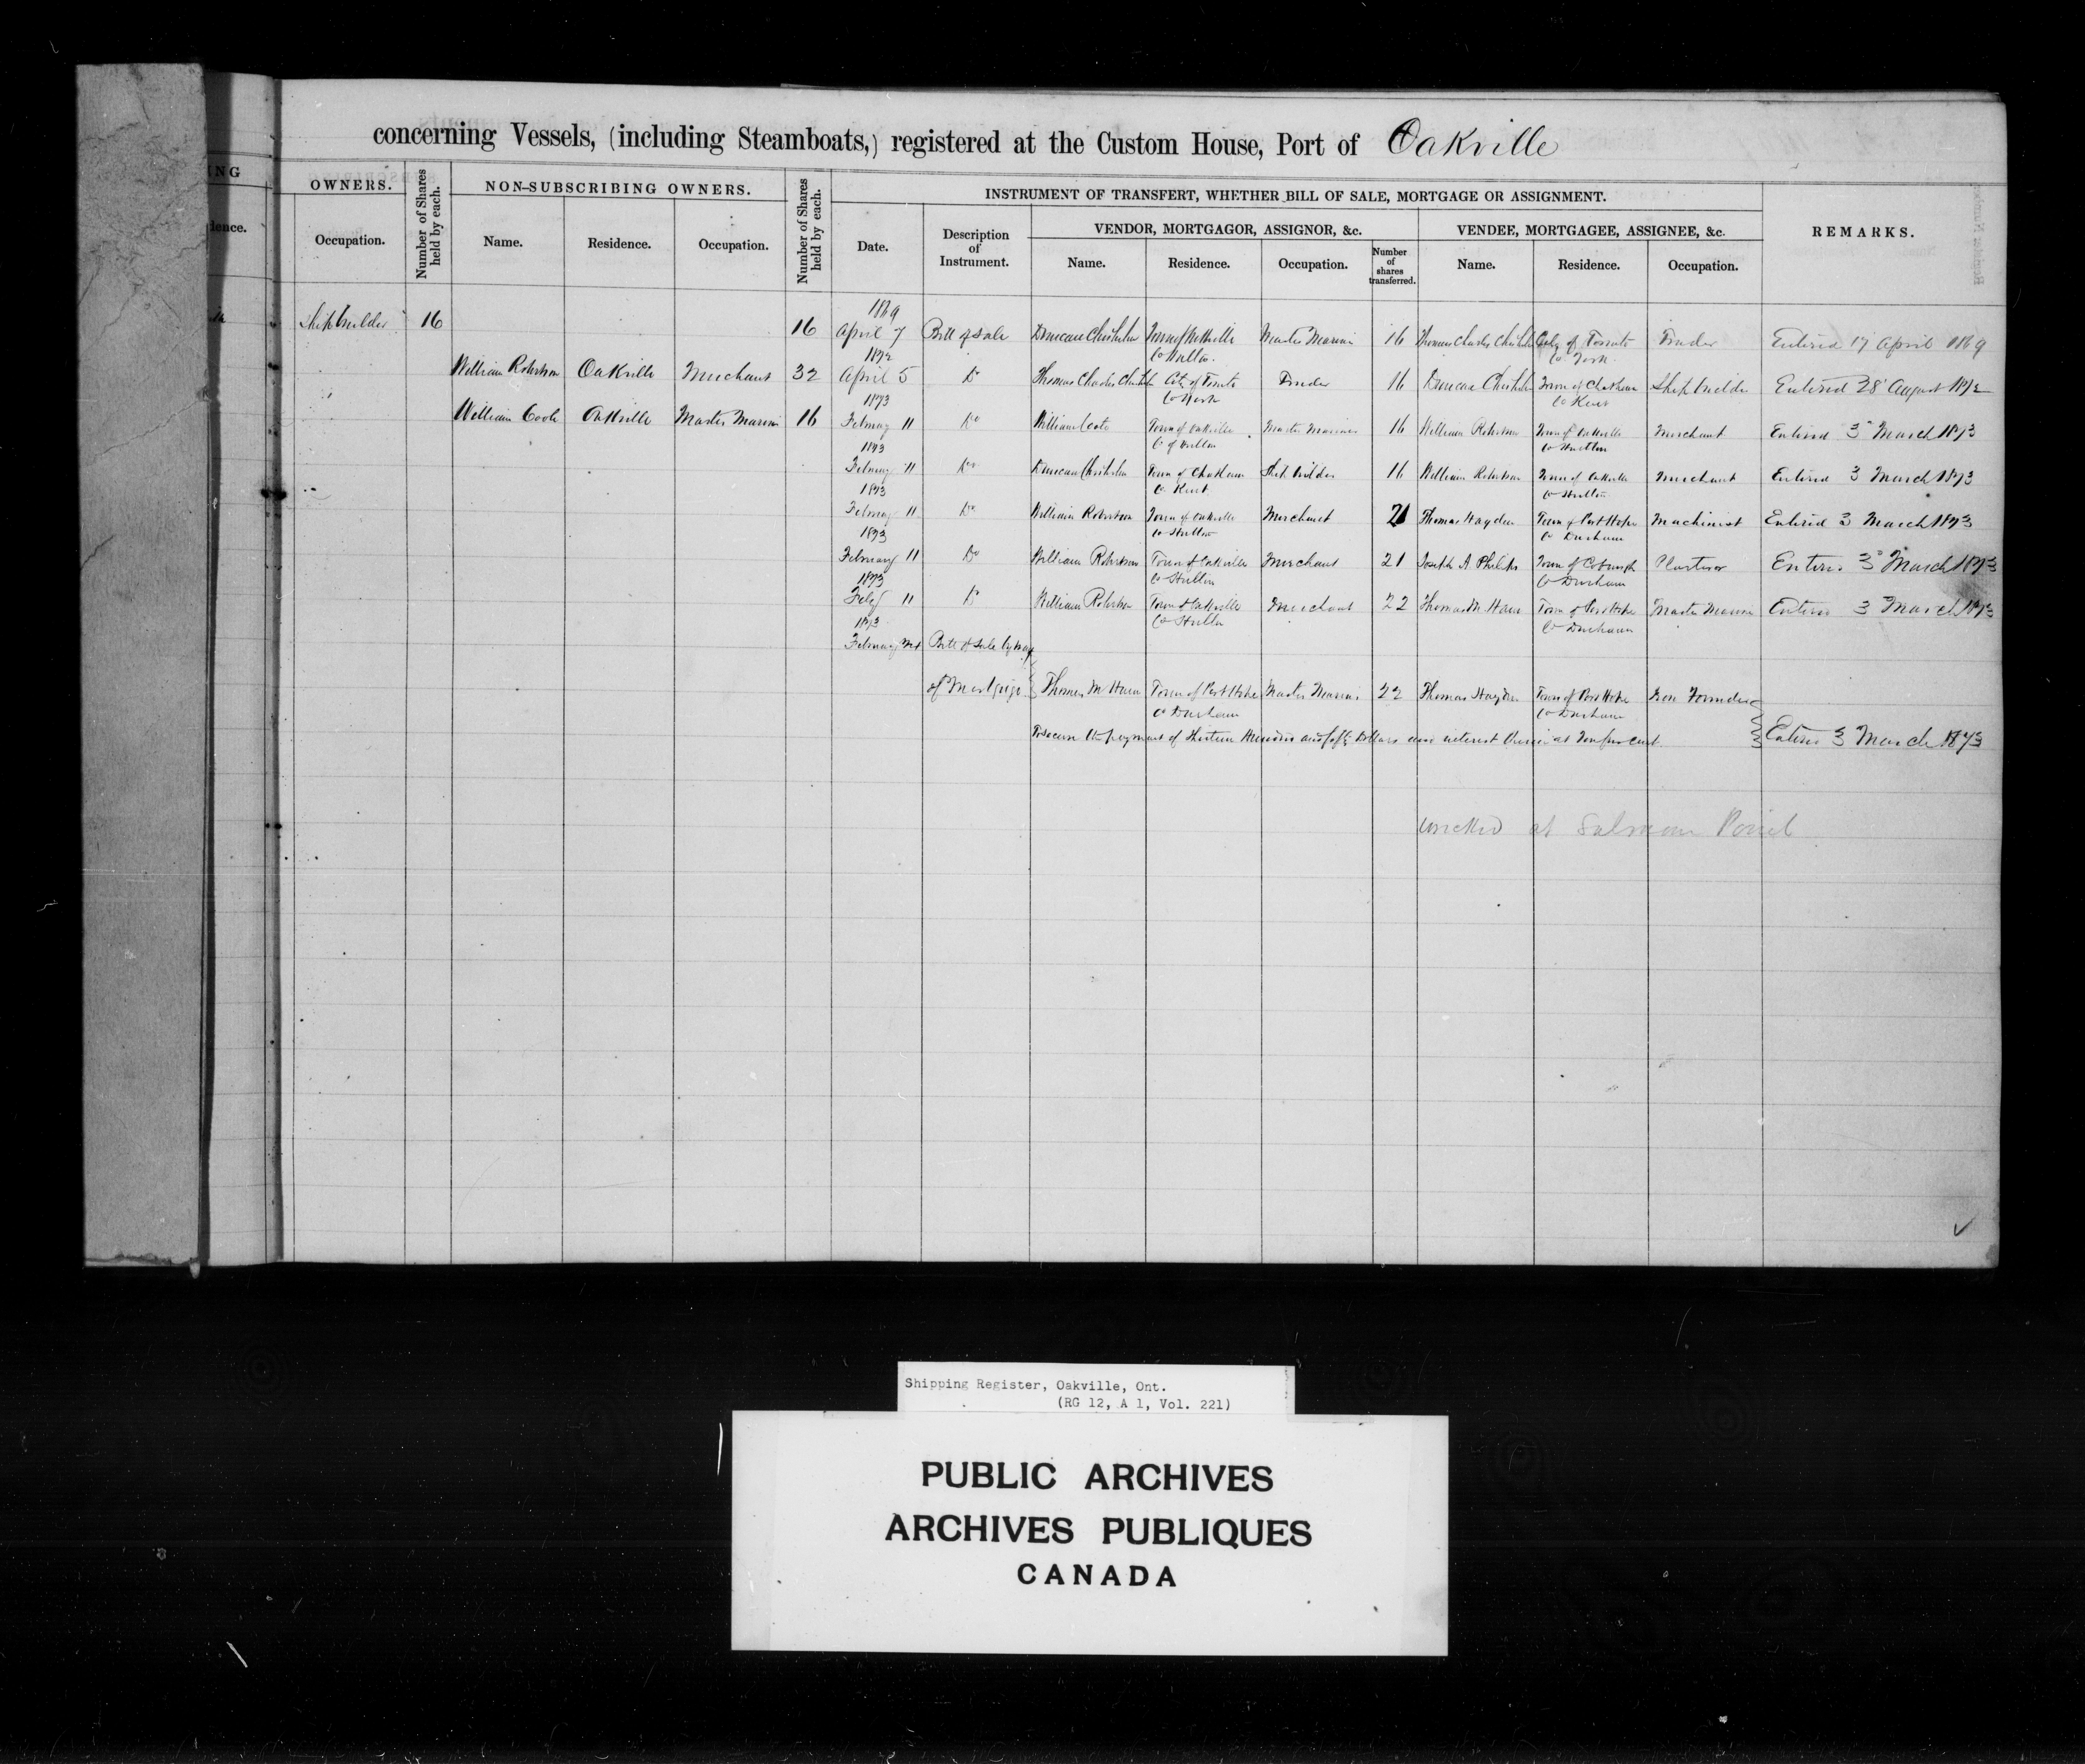 concerning Vessels, (including Steamboats,) registered at the Custom House, Port of Oakville
ING
OWNERS.
Number of Shares held by each.
NON-SUBSCRIBING OWNERS.
Number of Shares held by each.
INSTRUMENT OF TRANSFERT, WHETHER BILL OF SALE, MORTGAGE OR ASSIGNMENT.
REMARKS.
dence.
Occupation.
Name.
Residence.
Occupation.
Date.
Description of Instrument.
VENDOR, MORTGAGOR, ASSIGNOR, &c.
VENDEE, MORTGAGEE, ASSIGNEE, &c.
Name.
Residence.
Occupation.
Number of shares transferred.
Name.
Residence.
Occupation.
1869
Shipbuilder 16 16 April 7 Bill of Sale Duncan Chisholm Town of Oakville Master Mariner 16 Thomas Charles Chisholm City of Toronto Trader Entered 17 April 1869
1872 Co Halton. Co York
William Robertson Oakville Merchant 32 April 5 Do Thomas Charles Chisholm City of Toronto Trader 16 Duncan Chisholm Town of Chatham Ship builder Entered 28 August 1872
1873 Co York Co Kent
William Coote Oakville Master Mariner 16 February 11 Do William Coote Town of Oakville Master Mariner 16 William Robertson Town of Oakville Merchant Entered 3 March 1873
1873 Co of Halton Co Halton
February 11 Do Duncan Chisholm Town of Chatham Ship builder 16 William Robertson Town of Oakville Merchant Entered 3 March 1873
1873 Co Kent Co Halton
February 11 Do William Robertson Town of Oakville Merchant 21 Thomas Hayden Town of Port Hope Machinist Entered 3 March 1873
1873 Co Halton Co Durham
February 11 Do William Robertson Town of Oakville Merchant 21 Joseph A. Philips Town of Cobourg Plasterer Entered 3 March 1873
1873 Co Halton Co Durham
Feby 11 Do William Robertson Town of Oakville Merchant 22 Thomas M. Town of Port Hope Master Mariner Entered 3 March 1873
1873 Co Halton Co Durham
February Bill of Sale by way
of Mortgage Thomas M Town of Port Hope Master Mariner 22 Thomas Hayden Town of Port Hope Iron Founder
Co Durham Co Durham
To secure the payment of Thirteen Hundred and fifty Dollars and interest thereon at Ten per cent Entered 3 March 1873
wrecked at Salmon Point
Shipping Register, Oakville, Ont.
(RG 12, A 1, Vol. 221)
PUBLIC ARCHIVES
ARCHIVES PUBLIQUES
CANADA